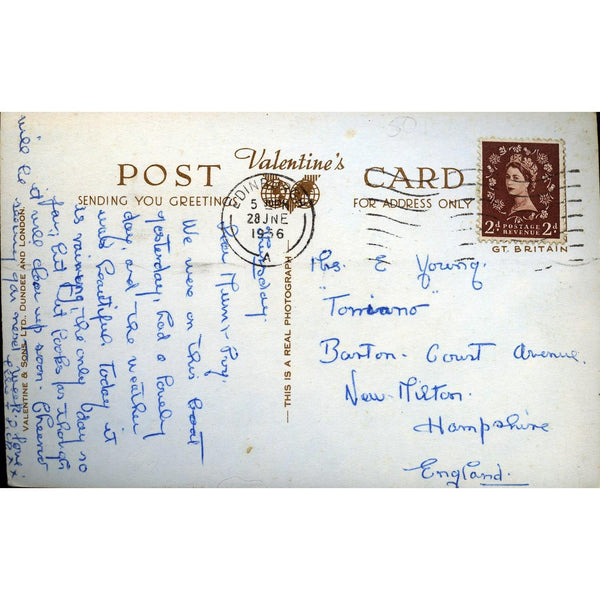 POST Valentine's CARD
SENDING YOU GREETINGS FOR ADDRESS ONLY
5
28 JNE
1956
A
2d POSTAGE REVENUE 2d
GT. BRITAIN
Thursday.
Dear Mum &
We were on this boat
yesterday, had a lovely
day, and the weather
was beautiful. Today it
is raining, the only day so
far, but it looks as though
it will clear up soon. Cheerio
will be seeing you
VALENTINE & SONS. LTD. DUNDEE AND LONDON.
— THIS IS A REAL PHOTOGRAPH —
Mrs. E Young.
Barton Court Avenue.
New Milton.
Hampshire
England.